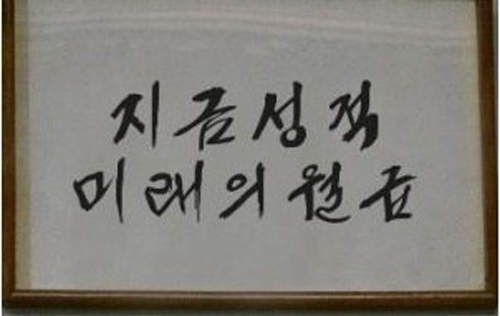 지금성적
미래의월급